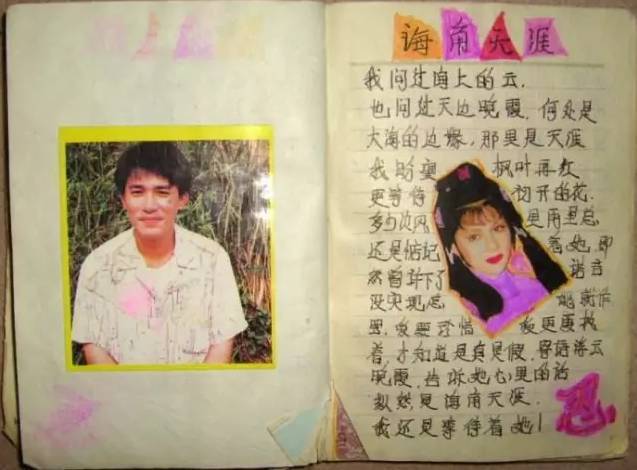 海角天涯
我问过海上的云,
也问过天边晚霞, 何处是
大海的边缘, 那里是天涯
我盼望 枫叶再红
更等待 初开的花.
多少次风 里雨里总
还是惦记 着她, 即
然曾许下了 诺言
没实现总
里, 我要 我更要
着, 才知道是真是假, 浮云
晚霞, 告诉她心里的话
纵然是海角天涯.
我还是等待着她!
忍